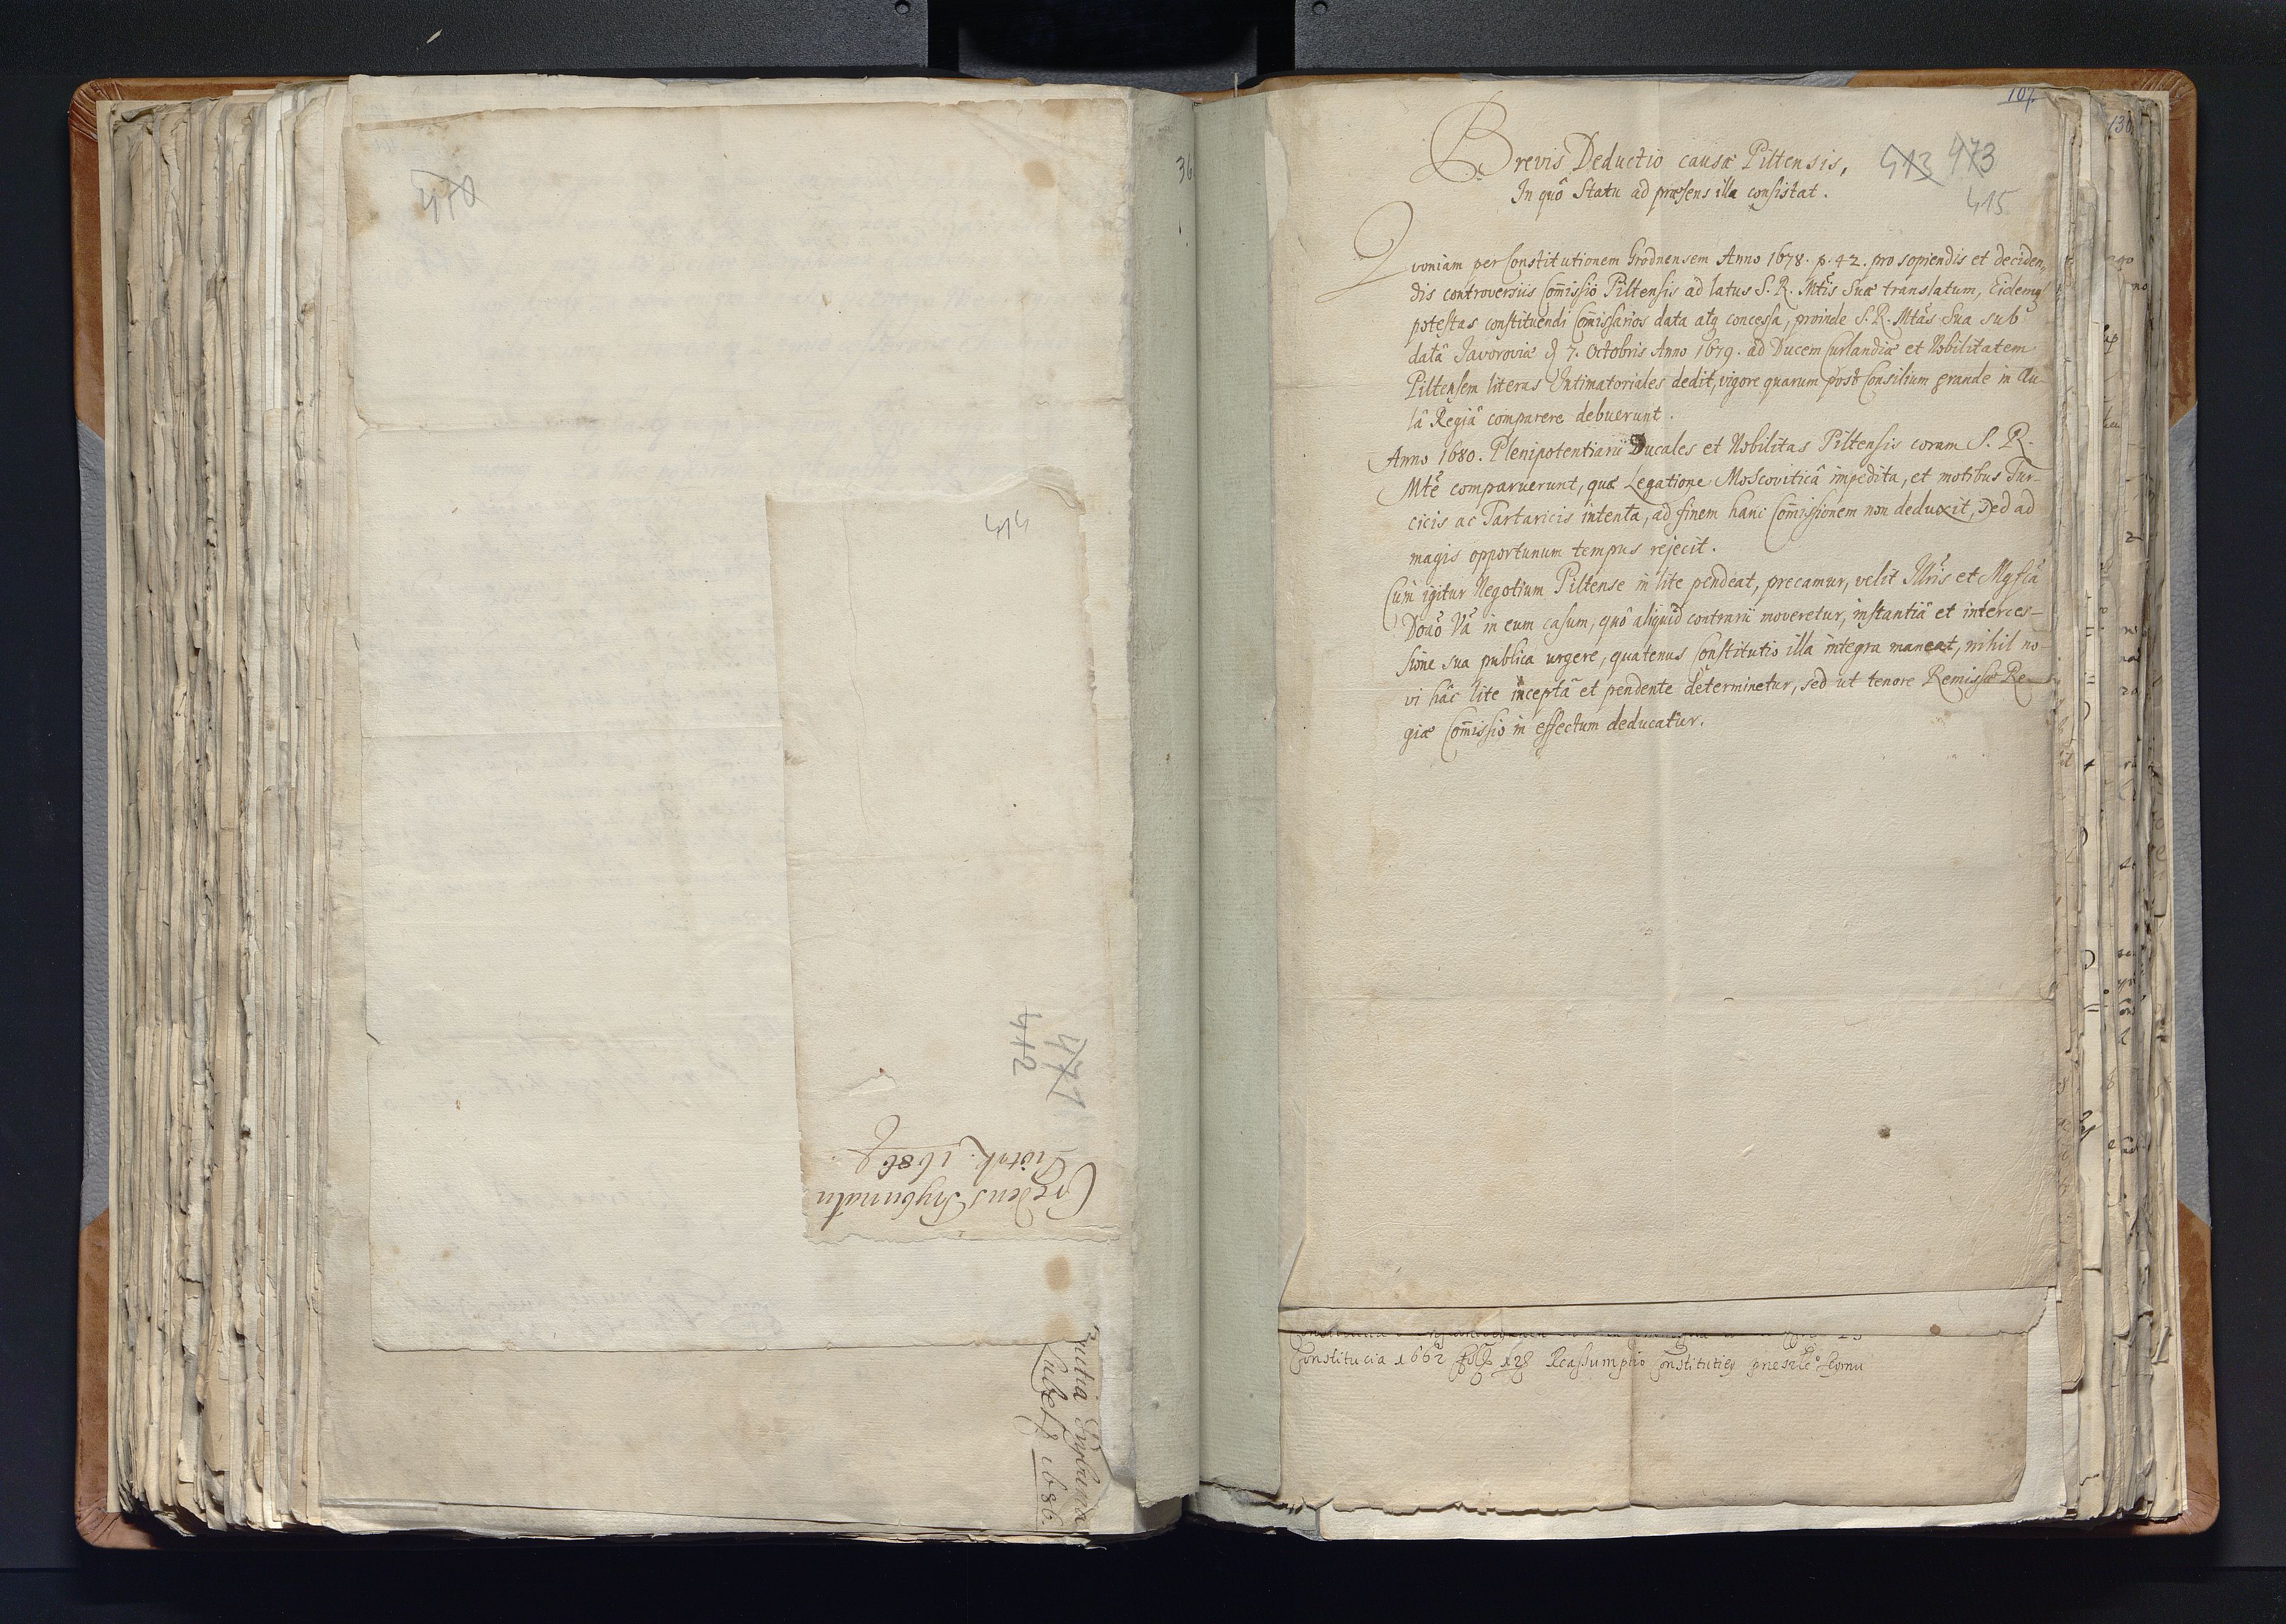 410
414
412
471
Credens Trybunału
Piotrk. 1686
Lubelsk. 1686.
36
107.
Brevis Deductio causæ Piltensis,
In quô Statu ad præsens illa consistat.
413 473
415
Quoniam per Constitutionem Grodnensem Anno 1678. p. 42. pro sopiendis et deciden,
dis controversiis Com̄issio Piltensis ad latus S. R. Mtis Suæ translatum, Eidemq;
potestas constituendi Com̄issarios data atq; concessa, proinde S. R. Mtas Sua sub
datâ Javoroviæ d. 7. Octobris Anno 1679. ad Ducem Curlandiæ et Nobilitatem
Piltensem literas Intimatoriales dedit, vigore quarum post Consilium grande in Au-
lâ Regiâ comparere debuerunt.
Anno 1680. Plenipotentiarii Ducales et Nobilitas Piltensis coram S. R.
Mte comparuerunt, quæ Legatione Moscoviticâ impedita, et motibus Tur-
cicis ac Tartaricis intenta, ad finem hanc Com̄issionem non deduxit, Sed ad
magis opportunum tempus rejecit.
Cùm igitur Negotium Piltense in lite pendeat, precamur, velit Illris et Mgfca
Donao Va in eum casum, quô aliquid contrarii moveretur, instantiâ et interces-
sione sua publica urgere, quatenus Constitutio illa integra maneat, nihil no-
vi hâc lite inceptâ et pendente determinetur, sed ut tenore Remissæ Re-
giæ Com̄issio in effectum deducatur.
Constitucia 1662 Reassumptio